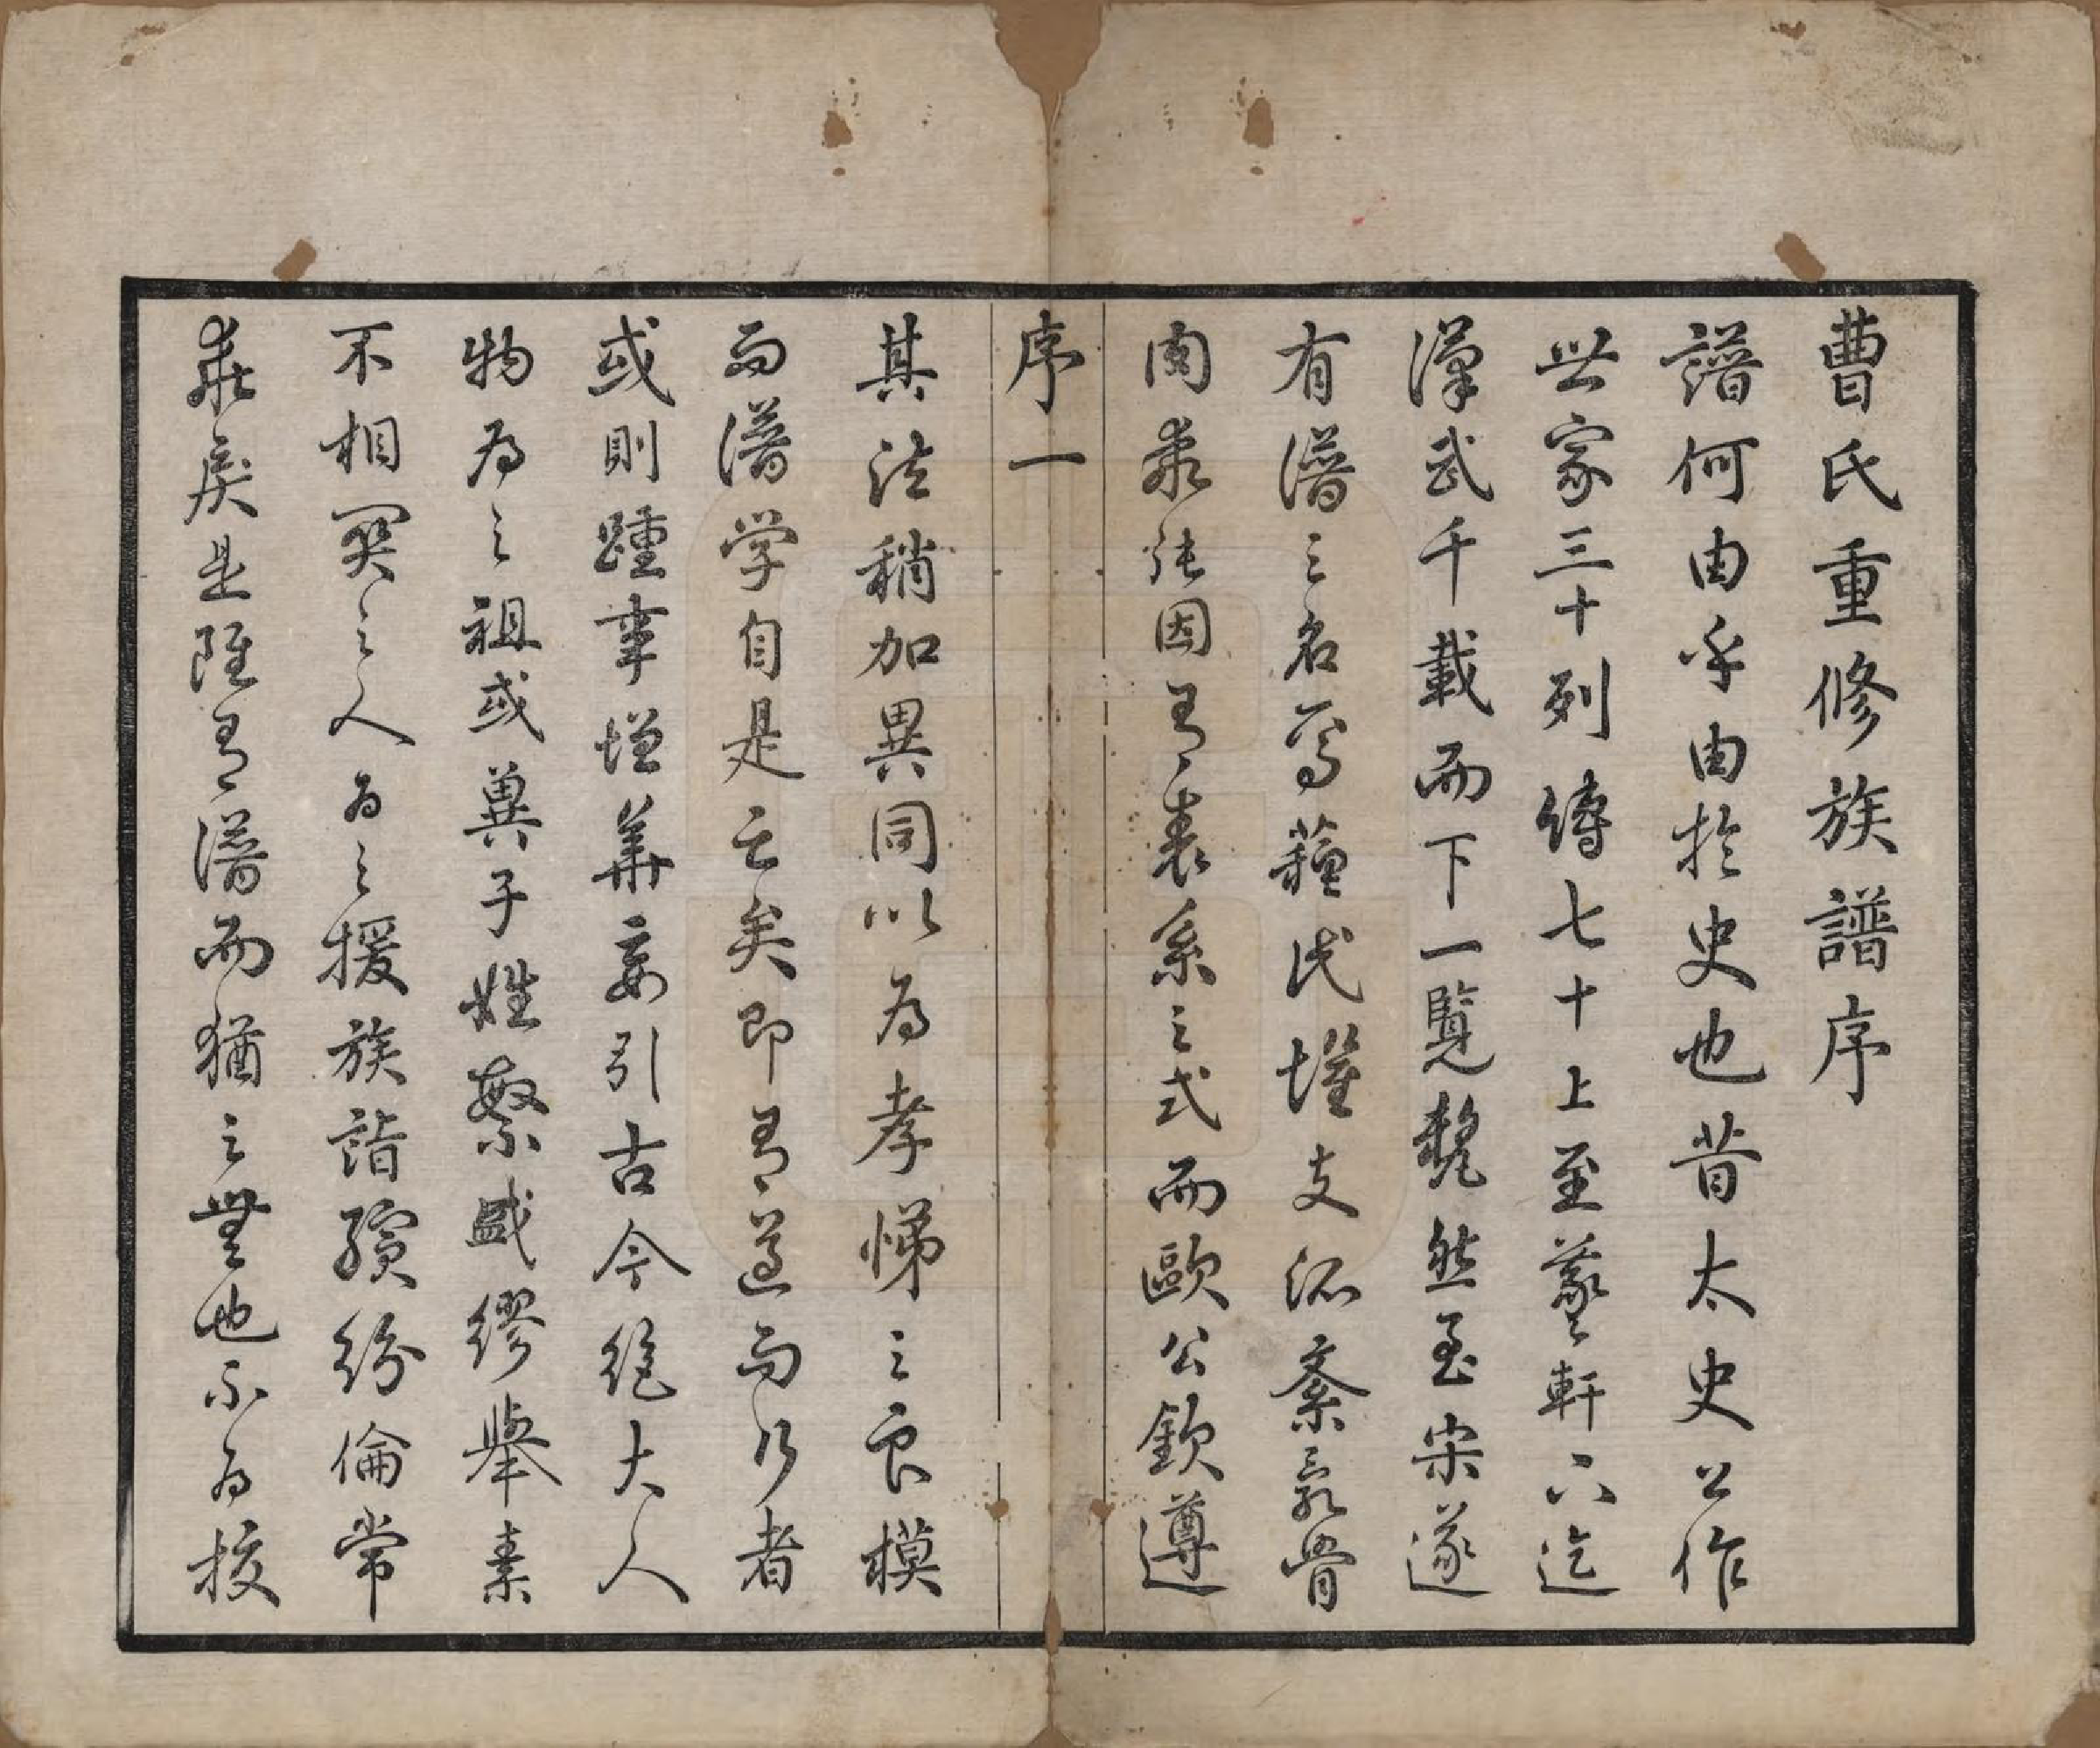 曹氏重修族譜序
譜何由乎由於史也昔太史公作
世家三十列傳七十上至羲軒下迄
漢武千載而下一覽犂然至宋遂
有譜之名焉蘓氏懼支派紊亂骨
肉乖張因有表系之式而歐公欽遵
序一
其法稍加異同以為孝悌之良模
而譜學自是亡矣即有遵而行者
或則踵事增華妄引古今絕大人
物為之祖或冀子姓繁盛繆舉素
不相関之人為之援族譜殯紛倫常
乖戾是雖有譜而猶之無也不為按